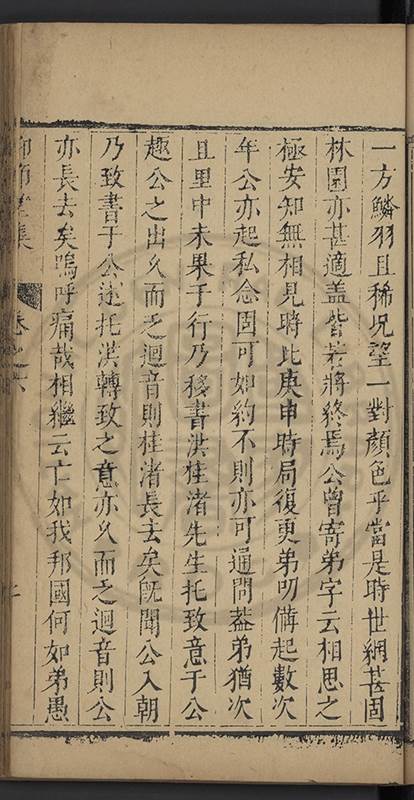 一方鱗羽且稀况望一對顏色乎當是時世網甚固
林園亦甚適盖皆若將終焉公曾寄弟字云相思之
極安知無相見時比庚申時局復更弟叨備起數次
年公亦起私念固可如約不則亦可通問葢弟猶次
且里中未果于行乃移書洪桂渚先生托致意于公
趣公之出乆而乏迴音則桂渚長去矣旣聞公入朝
乃致書于公遂托洪轉致之意亦乆而乏迴音則公
亦長去矣嗚呼痛哉相繼云亡如我邦國何如弟愚
集 卷之六